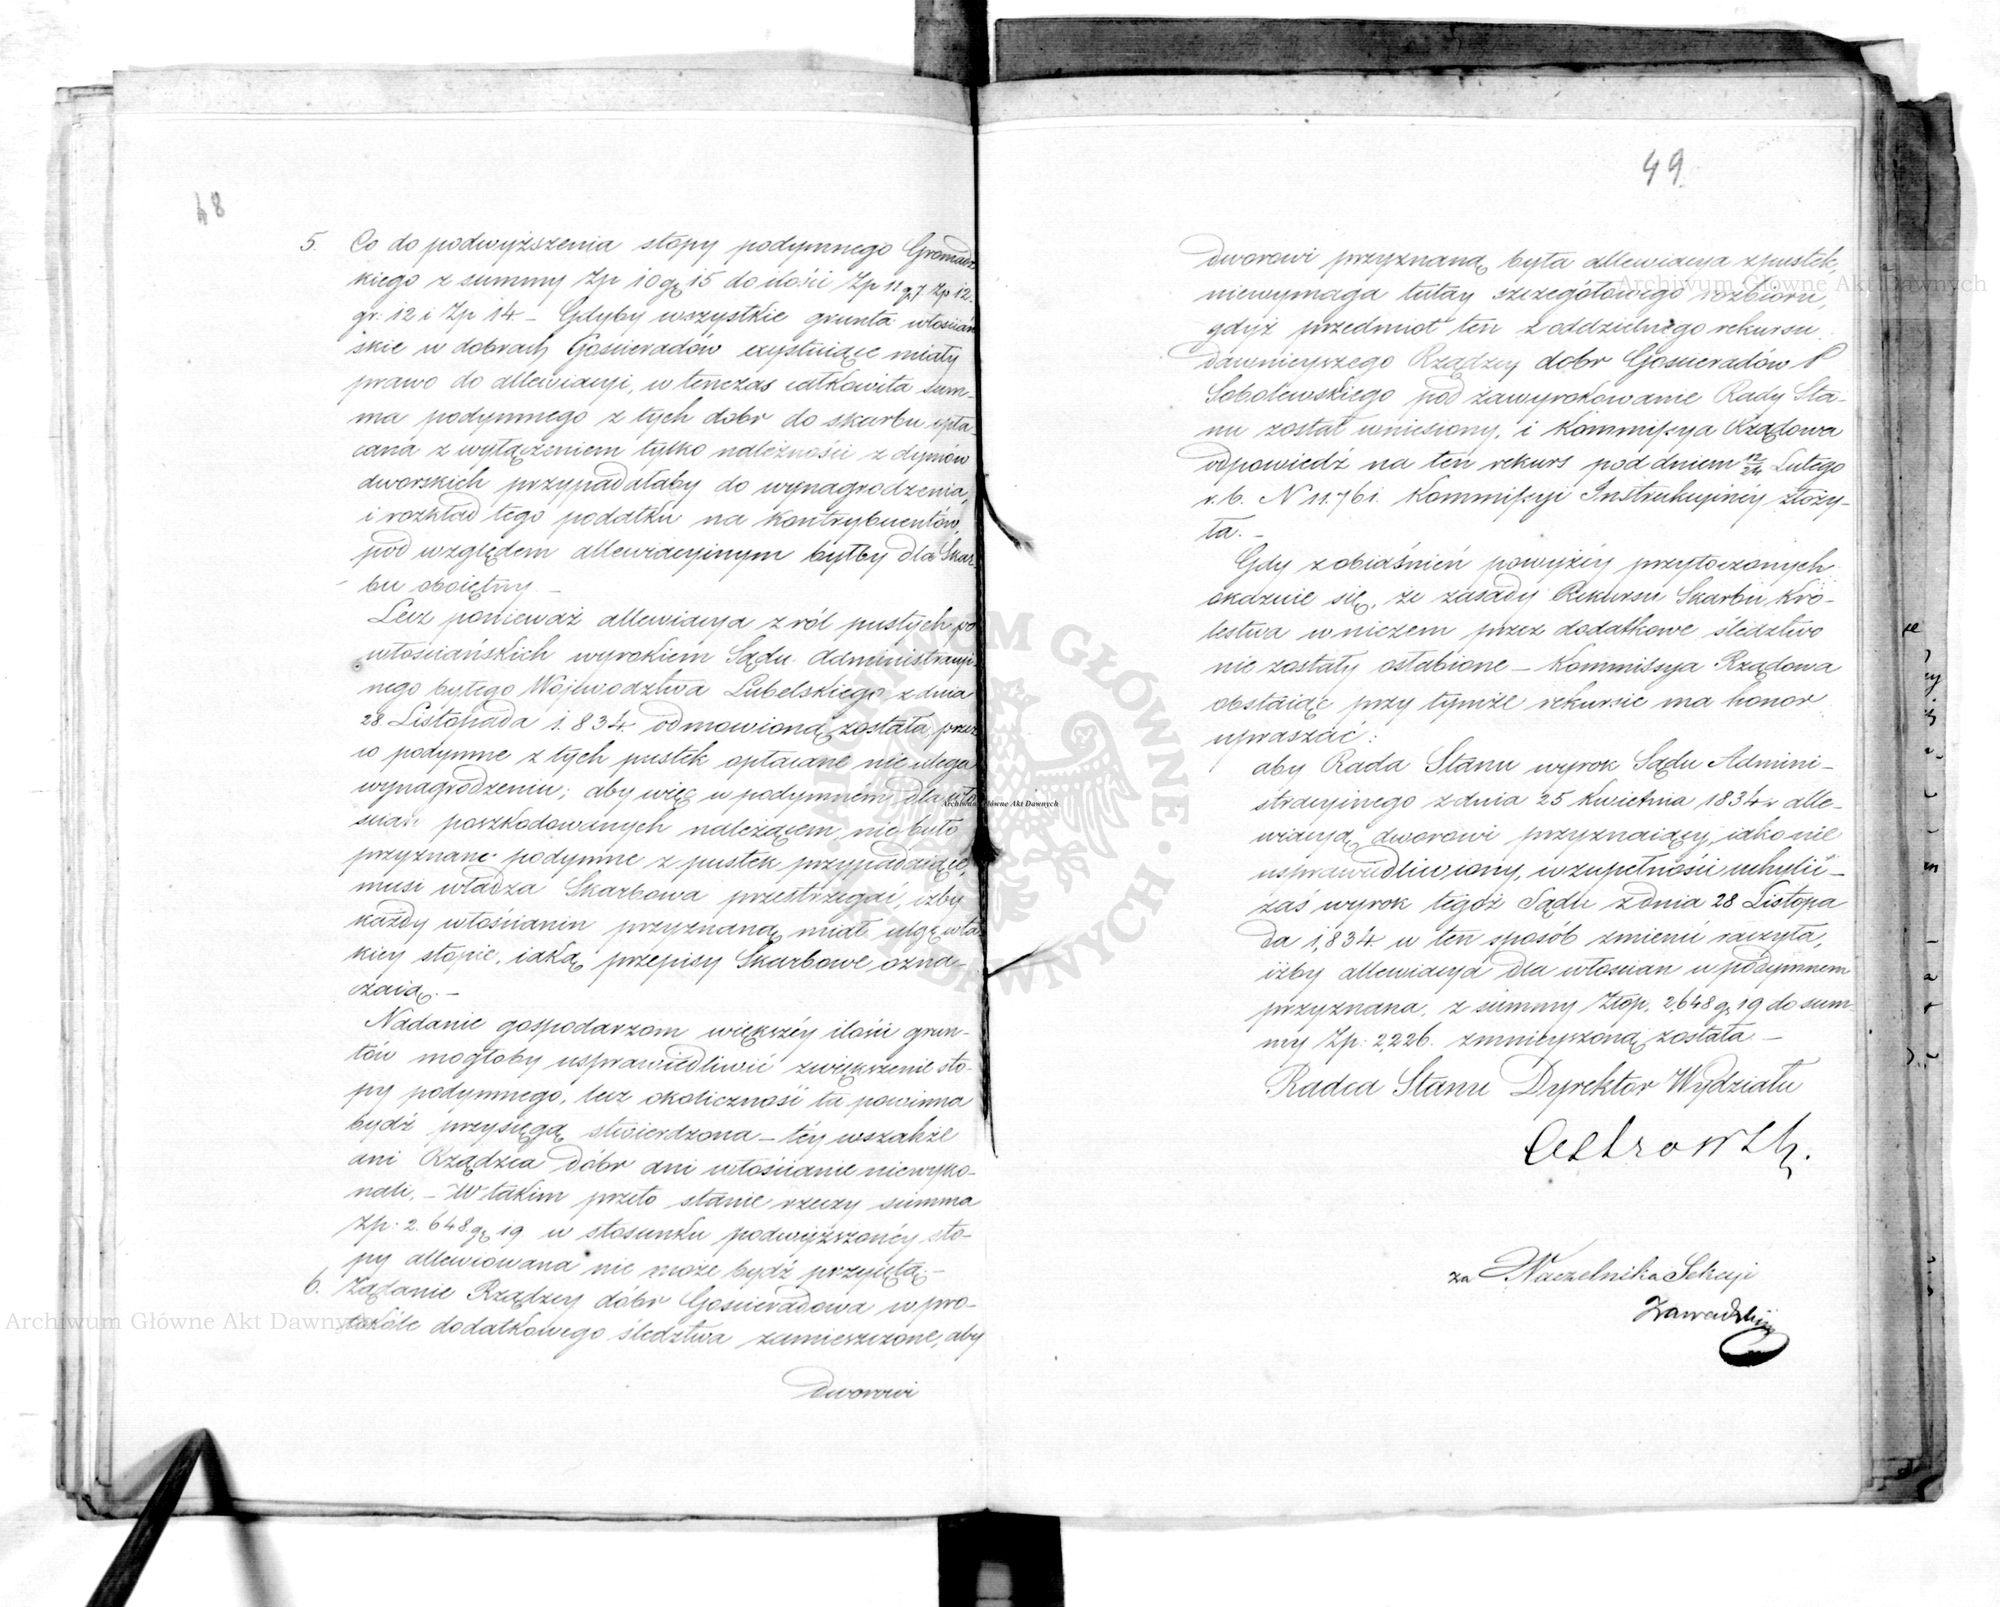 48
5. Co do podwyższenia stopy podymnego Gromadz
kiego z summy Zp 10 gr 15 do ilości Zp 11 gr 7 Zp 12.
gr: 12 i Zp 14 – Gdyby wszystkie grunta włościań
skie w dobrach Gościeradów exystuiące miały
prawo do allewiacyi, w tenczas całkowita sum-
ma podymnego z tych dobr do skarbu opła-
cana z wyłączeniem tylko należności z dymów
dworskich przypadałaby do wynagrodzenia,
i rozkład tego podatku na kontrybuentów,
pod względem allewiacyinym byłby dla Skar-
bu oboiętny. –
Lecz ponieważ allewiacya z ról pustych po
włościańskich wyrokiem Sądu Administracyi-
nego byłego Województwa Lubelskiego z dnia
28 Listopada 1.834. odmowioną została, przez
to podymne z tych pustek opłacane nie ulega
wynagrodzeniu; aby więc w podymnem, dla wło
ścian poszkodowanych należącem, nie było
przyznane podymne z pustek przypadaiące,
musi władza Skarbowa przestrzegać, iżby
każdy włościanin przyznaną miał ulgę w ta
kiey stopie, iaką przepisy Skarbowe ozna-
czaią. –
Nadanie gospodarzom większéy ilości grun-
tów mogłoby usprawiedliwić zwiększenie sto-
py podymnego, lecz okoliczność ta powinna
bydź przysięgą stwierdzona – téy wszakże
ani Rządzca dóbr ani włościanie niewyko-
nali. – W takim przeto stanie rzeczy summa
Zp: 2.648 gr 19 w stosunku podwyższonéy sto-
py allewiowana nie może bydź przyięta. –
6. Żądanie Rządzcy dóbr Gościeradowa w pro-
tokóle dodatkowego śledztwa zamieszczone, aby
dworowi
49.
dworowi przyznaną była allewiacya z pustek,
niewymaga tutay szczegółowego rozbioru,
gdyż przedmiot ten z oddzielnego rekursu
dawnieyszego Rządzcy dobr Gościeradów P
Sobolewskiego pod zawyrokowanie Rady Sta-
nu został wniesiony, i Kommissya Rządowa
odpowiedź na ten rekurs pod dniem 12/24 Lutego
r. b. N 11.761. Kommissyi Instrukcyinéy złoży-
ła. –
Gdy z obiaśnień powyżéy przytoczonych
okazuie się, że zasady Rekursu Skarbu Kró-
lestwa w niczem przez dodatkowe śledztwo
nie zostały osłabione – Kommissya Rządowa
obstaiąc przy tymże rekursie ma honor
upraszać:
aby Rada Stanu wyrok Sądu Admini-
stracyinego z dnia 25 Kwietnia 1834 r. alle-
wiacyą dworowi przyznaiący, iako nie
usprawiedliwiony, w zupełności uchylić –
zaś wyrok tegoż Sądu z dnia 28 Listopa
da 1,834 w ten sposób zmienić raczyła,
iżby allewiacya dla włościan w podymnem
przyznana, z summy Złop. 2,648 gr 19 do sum
my Zp: 2,226. zmnieyszoną została –
Radca Stanu Dyrektor Wydziału
za Naczelnika Sekcyi
Zawadzki
Archiwum Główne Akt Dawnych
Archiwum Główne Akt Dawnych
Archiwum Główne Akt Dawnych
ARCHIWUM GŁÓWNE AKT DAWNYCH